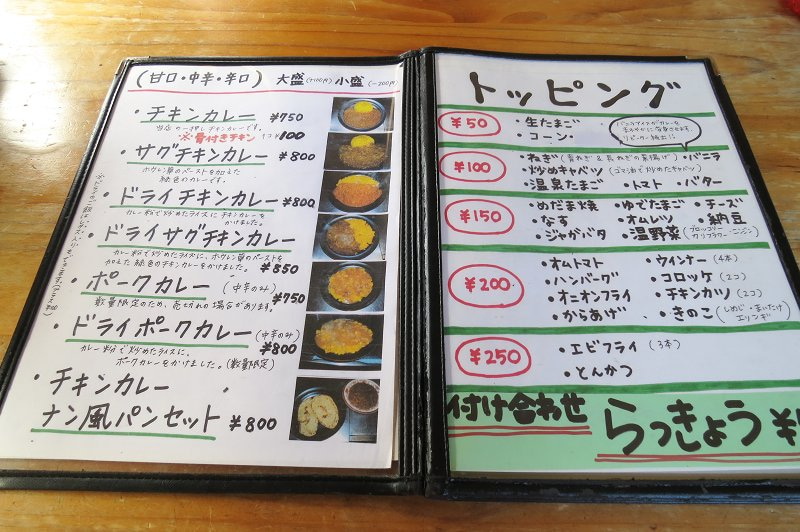 (甘口・中辛・辛口) 大盛(+100円) 小盛(-200円)
・チキンカレー ¥750
当店の一押しチキンカレーです。
※骨付きチキン 1コ ¥100
・サグチキンカレー ¥800
ホウレン草のペーストを加えた
緑色のカレーです。
・ドライチキンカレー ¥800
カレー粉で炒めたライスにチキンカレーを
かけました。
・ドライサグチキンカレー
カレー粉で炒めたライスに、ホウレン草のペーストを
加えた緑色のチキンカレーをかけました。 ¥850
・ポークカレー (中辛のみ)
数量限定のため、売切れの場合があります。 ¥750
・ドライポークカレー (中辛のみ)
カレー粉で炒めたライスに、 ¥800
ポークカレーをかけました。(数量限定)
・チキンカレー
ナン風パンセット ¥800
トッピング
¥50
・生たまご
・コーン
バニラアイスがカレーを
まろやかに変身させます。
リピーター続出!!
¥100
・ねぎ(青ねぎ&長ねぎの素揚げ) ・バニラ
・炒めキャベツ(ゴマ油で炒めたキャベツ)
・温泉たまご ・トマト ・バター
¥150
・めだま焼 ・ゆでたまご ・チーズ
・なす ・オムレツ ・納豆
・ジャガバタ ・温野菜(ブロッコリー カリフラワー・ニンジン)
¥200
・オムトマト ・ウインナー(4本)
・ハンバーグ ・コロッケ(2コ)
・オニオンフライ ・チキンカツ(2コ)
・からあげ ・きのこ(しめじ・まいたけ エリンギ)
¥250
・エビフライ(3本)
・とんかつ
付け合わせ
らっきょう ¥